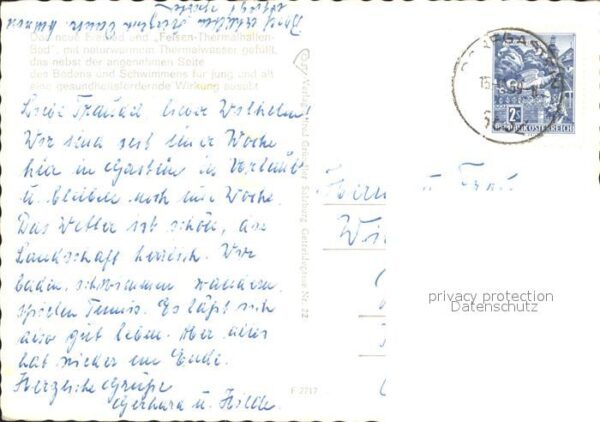 Das neue Eisbad und „Felsen-Thermalhallen-
Bad", mit naturwarmem Thermalwasser gefüllt,
das nebst der angenehmen Seite
des Badens und Schwimmens für jung und alt
eine gesundheitsfördernde Wirkung ausübt
Liebe Traudl, lieber Wilhelm!
Wir sind seit einer Woche
hier in Gastein im Urlaub
u. bleiben noch eine Woche.
Das Wetter ist schön, die
Landschaft herrlich. Wir
baden, schwimmen wandern
spielen Tennis. Es läßt sich
also gut leben. Aber alles
hat wieder ein Ende.
Herzliche Grüße
Gerhard u. Hilde.
Verlag und Salzburg, Nr. 22
F 2717
2 S
REPUBLIK ÖSTERREICH
5632
u Frau
Wi
privacy protection
Datenschutz